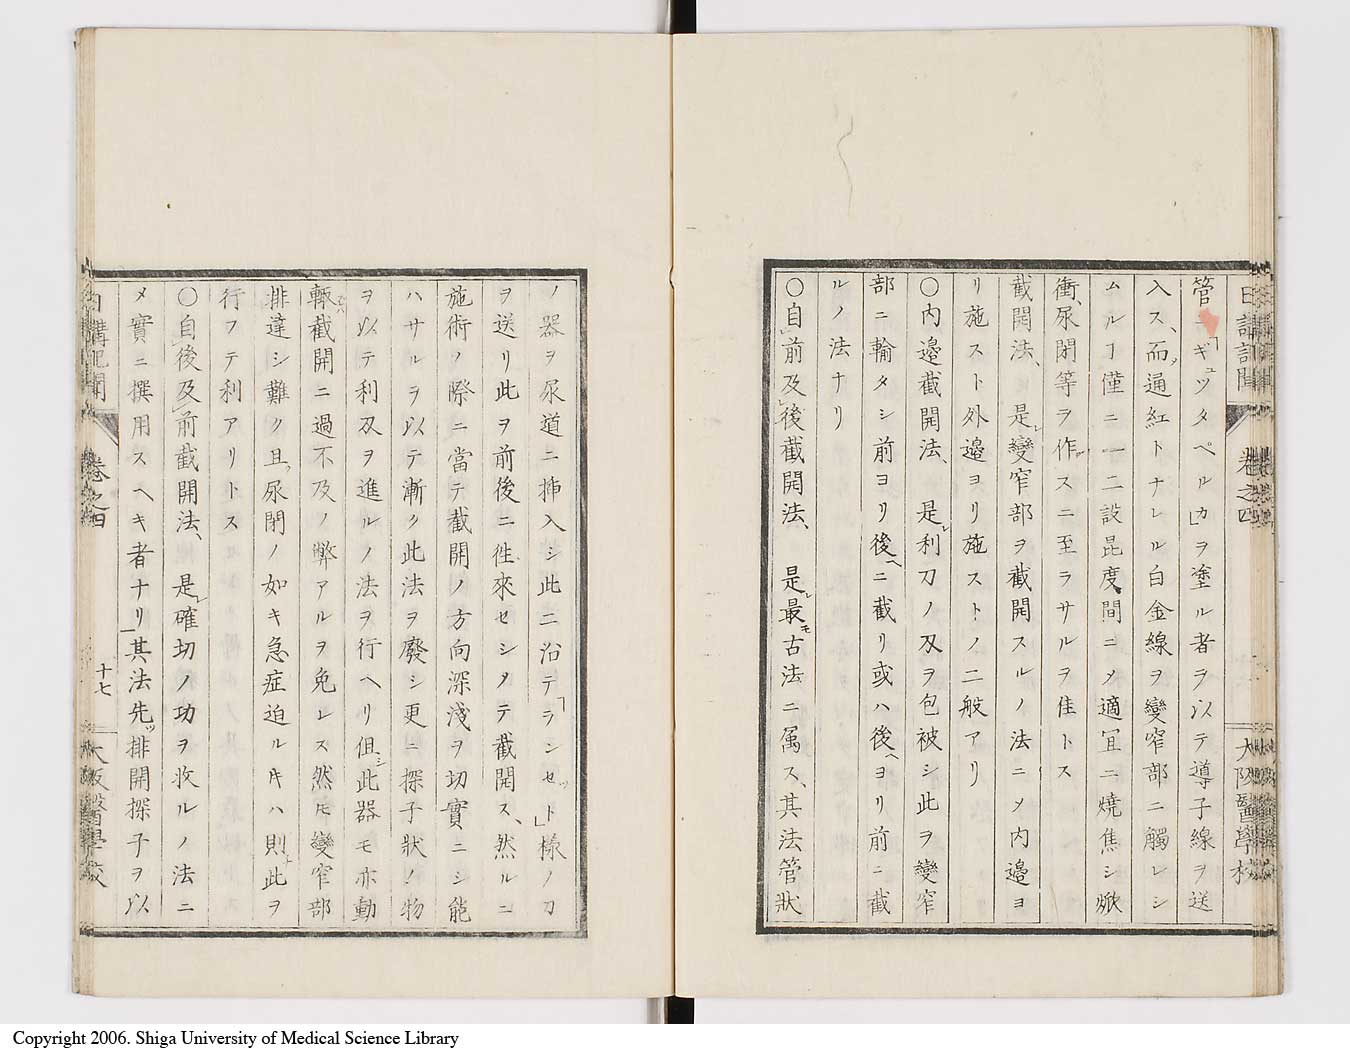 日講記聞 卷之四 大阪醫學校
管ニ「ギュツタペルカ」ヲ塗ル者ヲ以テ導子線ヲ送
入ス、而〆通紅トナレル白金線ヲ變窄部ニ觸レシ
ムルヿ僅ニ一二設昆度間ニ〆適宜ニ燒焦シ焮
衝、尿閉等ヲ作スニ至ラサルヲ佳トス
截開法、是レ變窄部ヲ截開スルノ法ニ〆内邉ヨ
リ施スト外邉ヨリ施ストノ二般アリ
〇内邉截開法、是レ利刀ノ刄ヲ包被シ此ヲ變窄
部ニ輸タシ前ヨリ後ヘニ截リ或ハ後ヘヨリ前ニ截
ルノ法ナリ
〇自前及後截開法、是レ最モ古法ニ属ス、其法管狀
ノ器ヲ尿道ニ挿入シ此ニ沿テ「ランセット」樣ノ刀
ヲ送リ此ヲ前後ニ徃來セシメテ截開ス、然ルニ
施術ノ際ニ當テ截開ノ方向深淺ヲ切實ニシ能
ハサルヲ以テ漸ク此法ヲ廢シ更ニ探子狀ノ物
ヲ以テ利刄ヲ進ルノ法ヲ行ヘリ但シ此器モ亦動
輙スレハ截開ニ過不及ノ弊アルヲ免レス然𪜈變窄部
排達シ難ク且ツ尿閉ノ如キ急症迫ルキハ則チ此ヲ
行フテ利アリトス
〇自後及前截開法、是レ確切ノ功ヲ收ルノ法ニ
〆實ニ撰用スヘキ者ナリ其法先ツ排開探子ヲ以
日講記聞 卷之四 十七 大阪醫學校
Copyright 2006. Shiga University of Medical Science Library